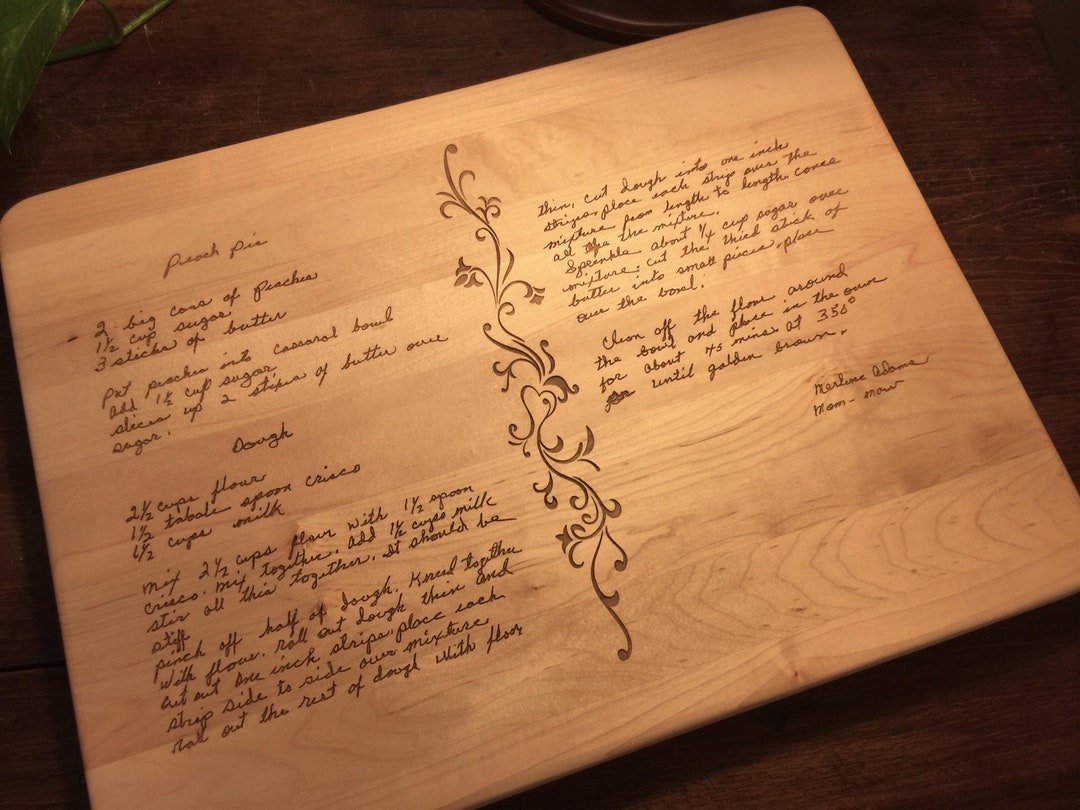 Peach pie
2 big cans of Peaches
1½ cup sugar
3 sticks of butter
Put peaches into cassaral bowl
add 1½ cup sugar
slices up 2 stixes of butter over
sugar.
Dough
2½ cups flour
1½ table spoon crisco
1½ cups milk
mix 2½ cups flour with 1½ spoon
crisco. mix together. add 1½ cups milk
stir all this together. it should be
stiff
pinch off half of dough. Kneed together
with flour. roll out dough thin and
cut out one inch strips. place each
strip side to side over mixture
roll out the rest of dough with flour
thin, cut dough into one inch
strips, place each strip over the
mixture from length to length cover
all the mixture.
Sprenkle about ¼ cup sugar over
mixture. cut the third stick of
butter into small pieces, place
over the bowl.
Clean off the flour around
the bowl and place in the oven
for about 45 mins at 350°
until golden brown.
Merline Adams
Mom-maw